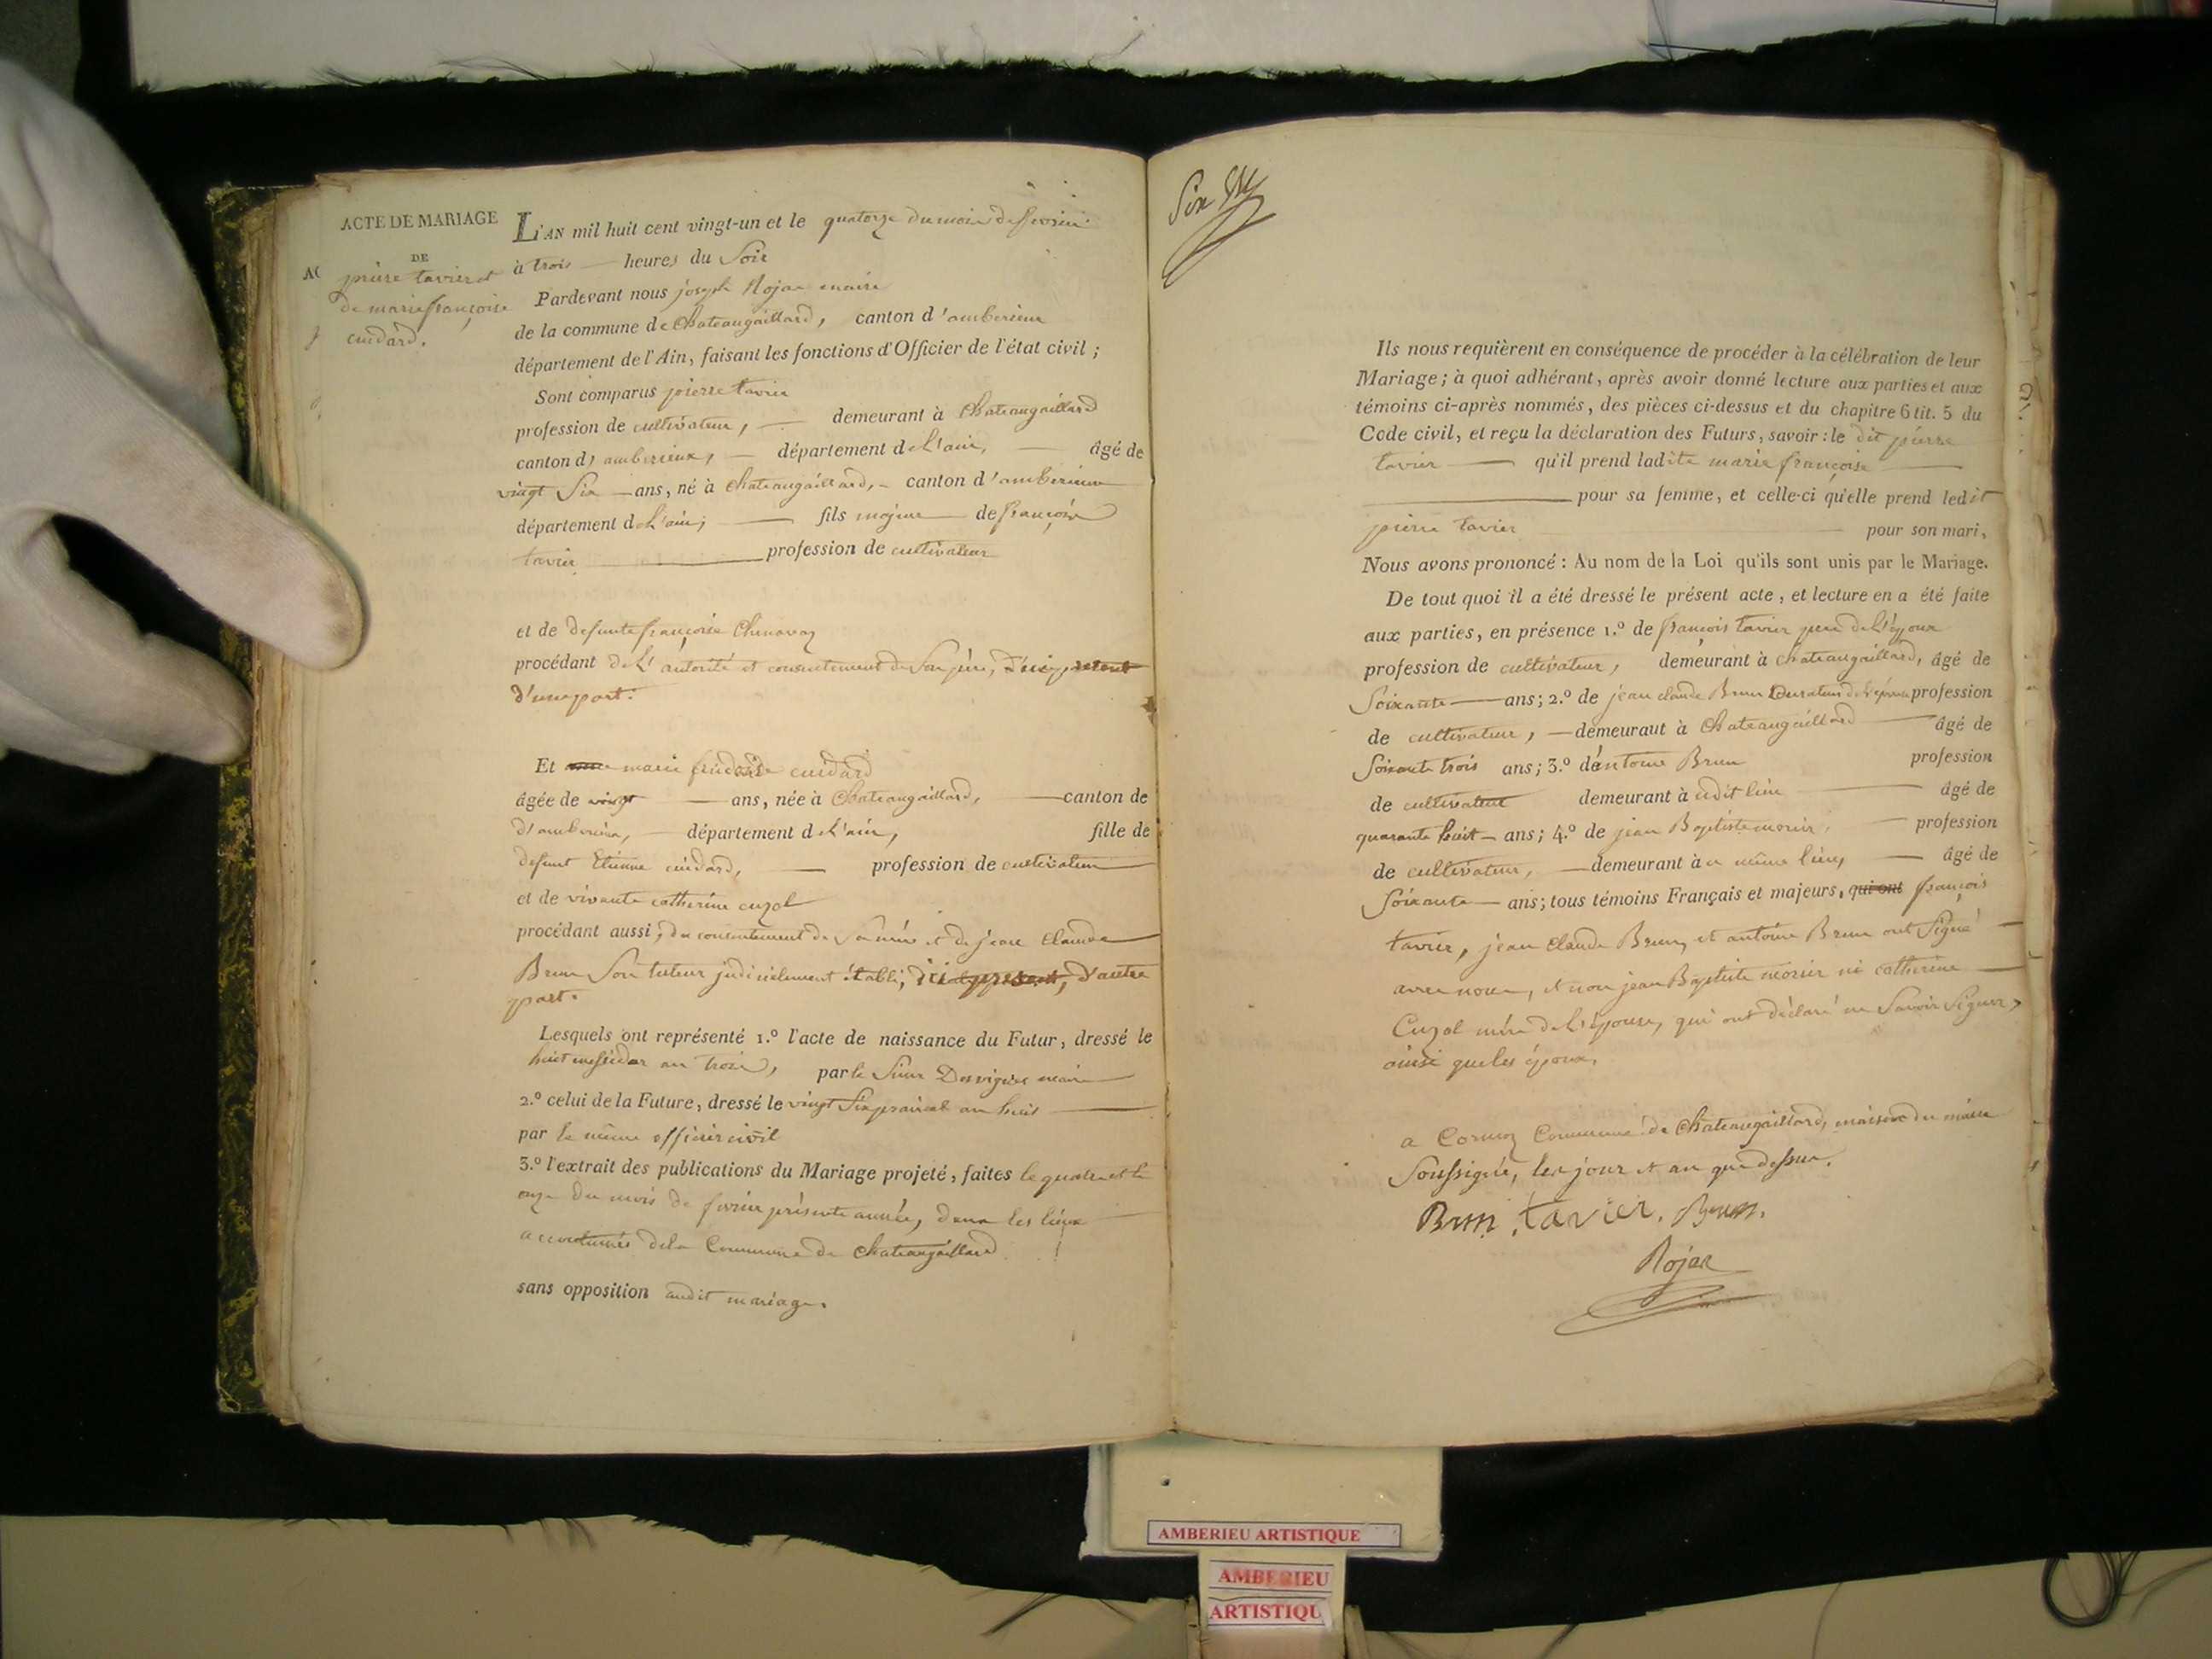 ACTE DE MARIAGE
DE
pierre tavier et
de marie françoise
cuidard.
L'AN mil huit cent vingt-un et le quatorze du mois de fevrier
à trois heures du Soir
Pardevant nous joseph Rojar maire
de la commune de Chateaugaillard, canton d'amberieux
département de l'Ain, faisant les fonctions d'Officier de l'état civil ;
Sont comparus pierre tavier
profession de cultivateur, demeurant à Chateaugaillard
canton d'amberieux, département de l'ain, âgé de
vingt Six ans, né à Chateaugaillard, canton d'amberieux
département de l'ain, fils majeur de françois
tavier profession de cultivateur
et de defunte françoise Chenavaz
procédant de l'autorité et consentement de Son père, d'ici present
d'une part.
Et marie françoise cuidard
âgée de vingt ans, née à Chateaugaillard, canton de
d'amberieu, département de l'ain, fille de
defunt Etienne cuidard, profession de cultivateur
et de vivante catherine cuzol
procédant aussi, du consentement de Sa mère et de jean Claude
Brun Son tuteur judiciellement établi, ici present, d'autre
part.
Lesquels ont représenté 1.º l'acte de naissance du Futur, dressé le
huit messidor an trois, par le Sieur Desvignes maire
2.º celui de la Future, dressé le vingt Six prairial an huit
par le même officier civil
3.º l'extrait des publications du Mariage projeté, faites le quatre et le
onze du mois de fevrier présente année, dans les lieux
accoutumés de la Commune de Chateaugaillard
sans opposition audit mariage.
Six
Ils nous requièrent en conséquence de procéder à la célébration de leur
Mariage ; à quoi adhérant, après avoir donné lecture aux parties et aux
témoins ci-après nommés, des pièces ci-dessus et du chapitre 6 tit. 5 du
Code civil, et reçu la déclaration des Futurs, savoir : le dit pierre
tavier qu'il prend ladite marie françoise
pour sa femme, et celle-ci qu'elle prend ledit
pierre tavier pour son mari,
Nous avons prononcé : Au nom de la Loi qu'ils sont unis par le Mariage.
De tout quoi il a été dressé le présent acte, et lecture en a été faite
aux parties, en présence 1.º de françois tavier pere de l'époux
profession de cultivateur, demeurant à chateaugaillard, âgé de
Soixante ans ; 2.º de jean claude Brun Curateur de l'épouse profession
de cultivateur, demeurant à Chateaugaillard âgé de
Soixante trois ans ; 3.º d'antoine Brun profession
de cultivateur demeurant à udit lieu âgé de
quarante huit ans ; 4.º de jean Baptiste morier, profession
de cultivateur, demeurant à u même lieu, âgé de
Soixante ans ; tous témoins Français et majeurs, qui ont françois
tavier, jean Claude Brun, et antoine Brun ont Signé
avec nous, et non jean Baptiste morier ni catherine
Cuzol mère de l'épouse, qui ont déclaré ne Savoir Signer,
ainsi que les époux.
a Cormoz Commune de Chateaugaillard, maison du maire
Soussigné, les jour et an que dessus.
Brun. tavier. Brun.
Rojar
AMBERIEU ARTISTIQUE
AMBERIEU
ARTISTIQU